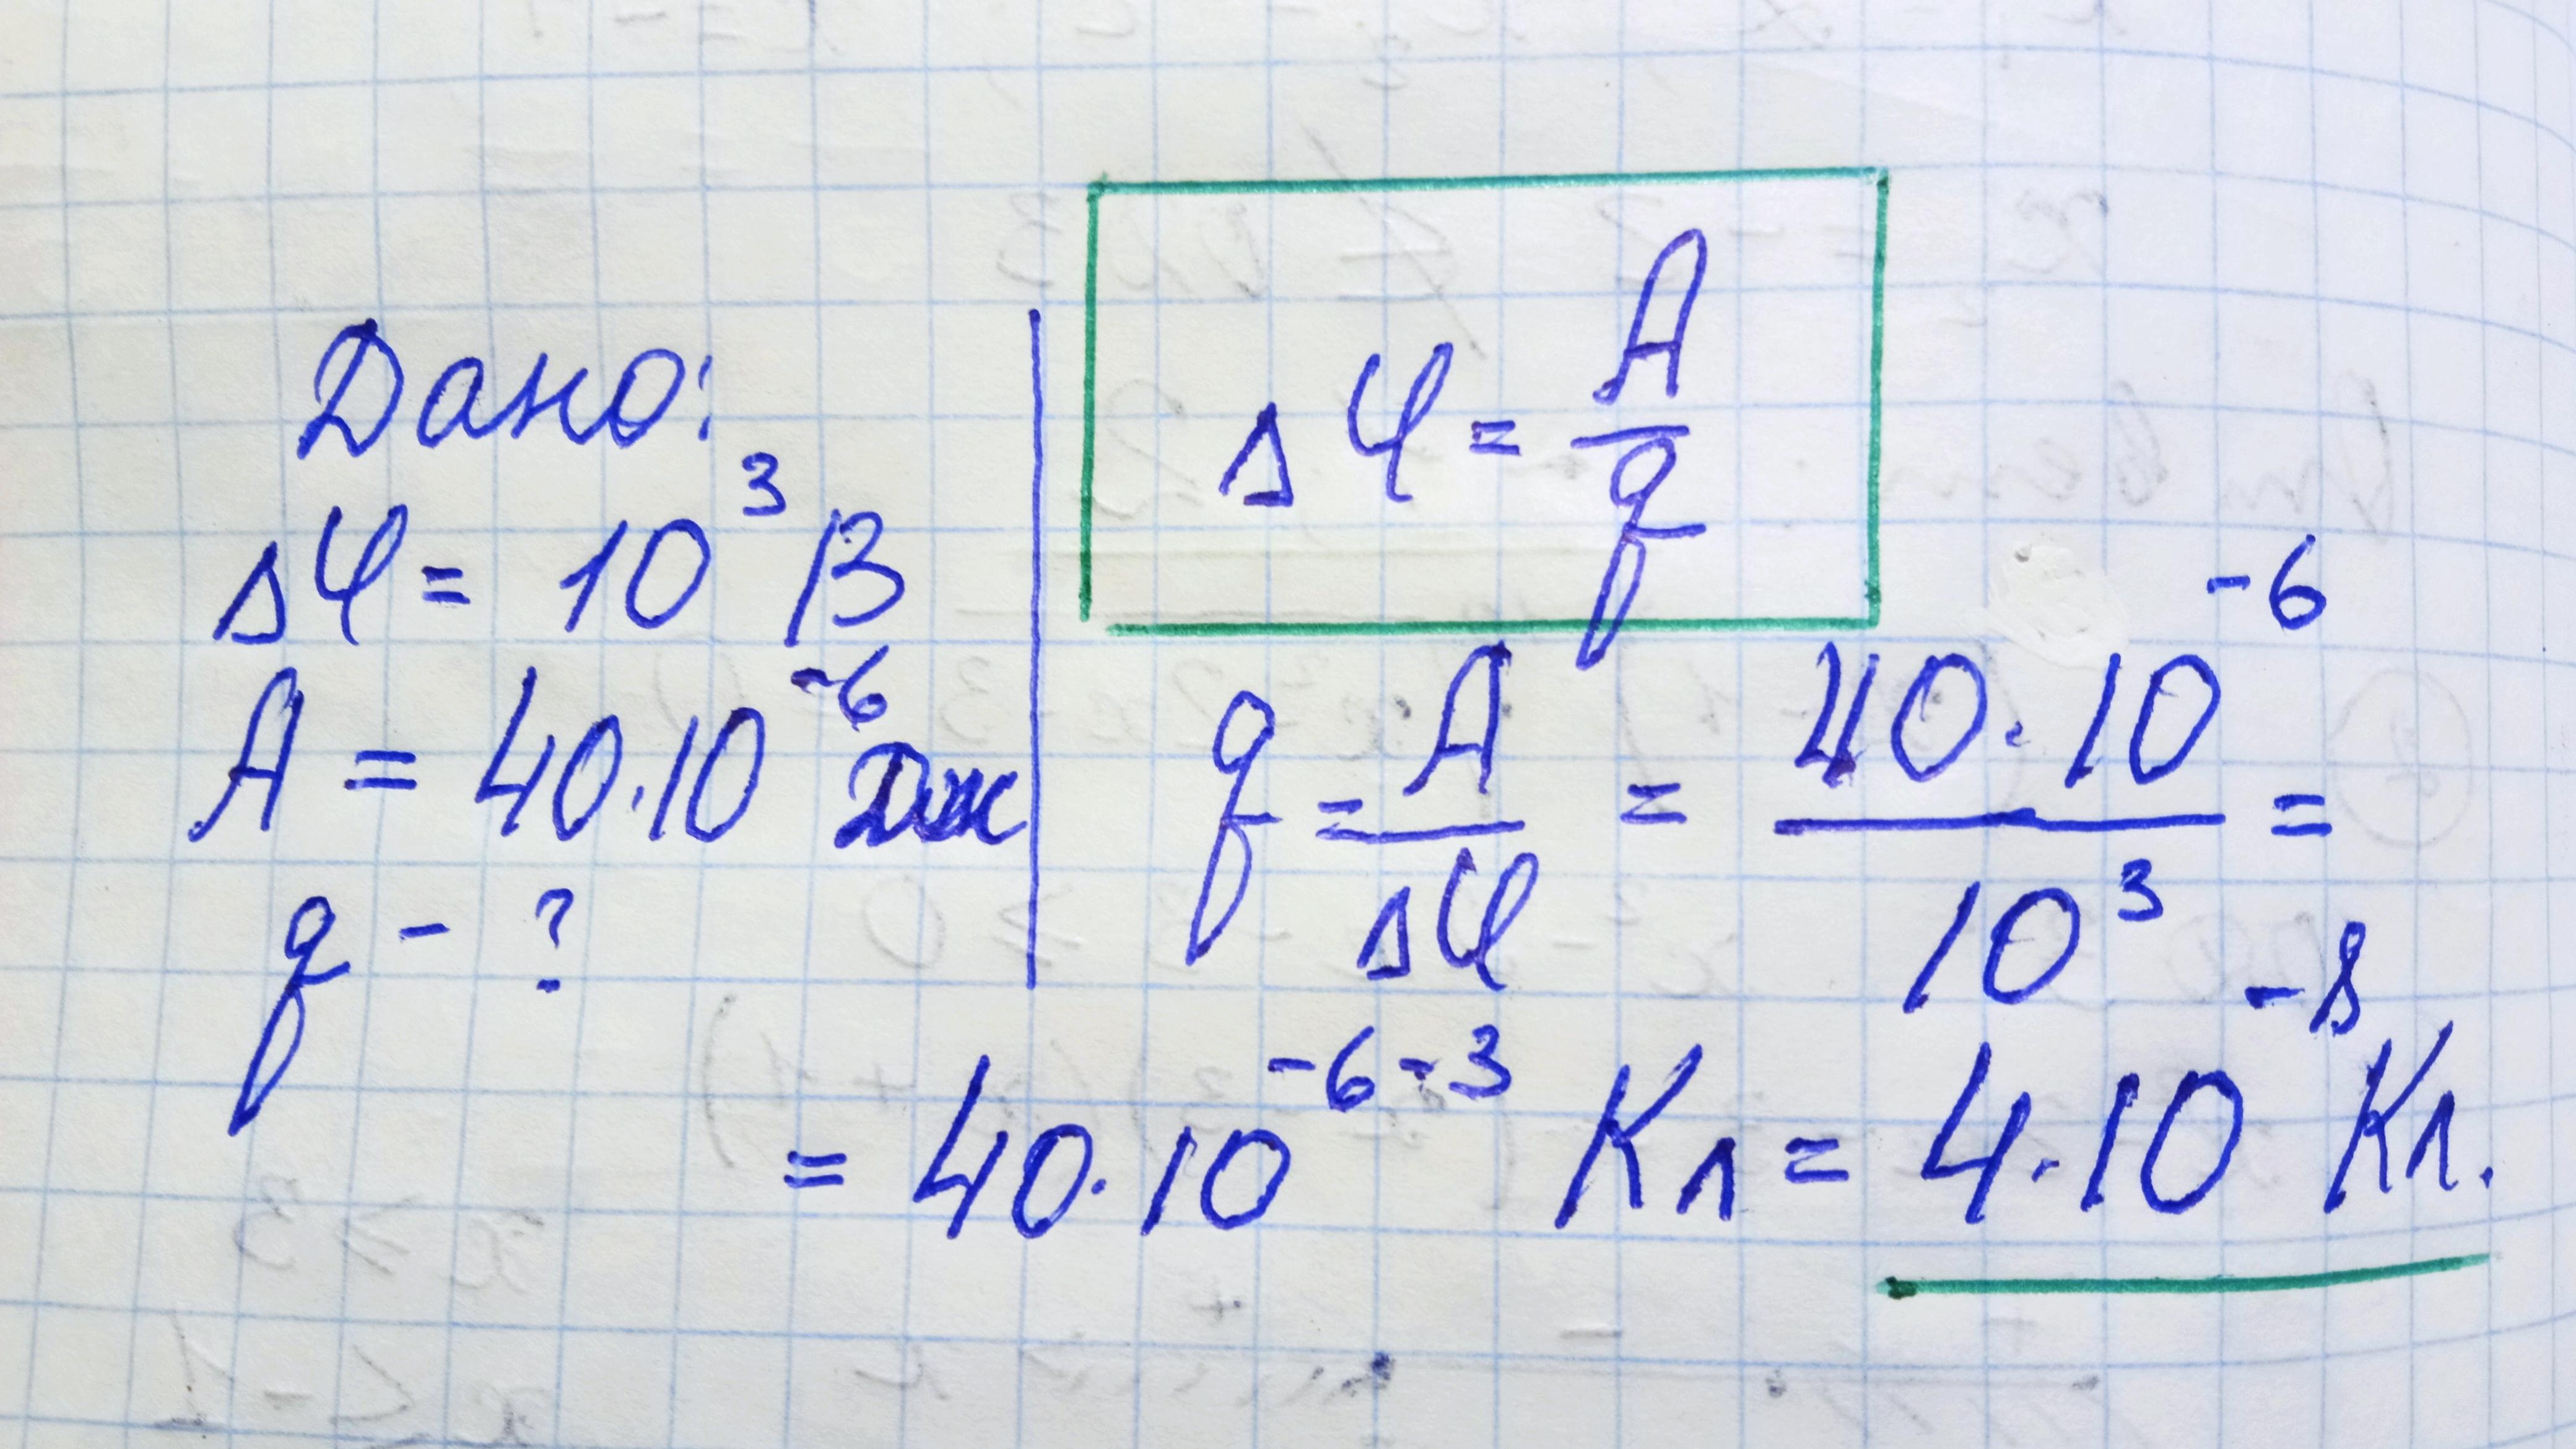 Дано:
Δφ = 10³ В
A = 40·10⁻⁶ Дж
q - ?
Δφ = A/q
q = A/Δφ = 40·10⁻⁶/10³ =
= 40·10⁻⁶⁻³ Кл = 4·10⁻⁸ Кл.